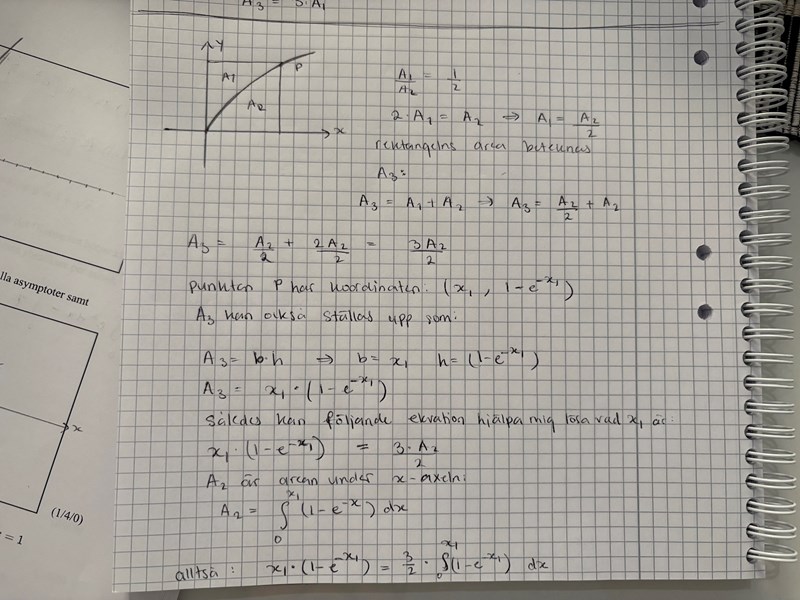 A₃ = 3·A₁
y
A1
P
A2
x
A₁/A₂ = 1/2
2·A₁ = A₂ ⇒ A₁ = A₂/2
rektangelns area betecknas
A₃:
A₃ = A₁ + A₂ → A₃ = A₂/2 + A₂
A₃ = A₂/2 + 2A₂/2 = 3A₂/2
punkten P har koordinaten: (x₁, 1-e^(-x₁))
A₃ kan också ställas upp som:
A₃ = b·h ⇒ b = x₁ h = (1-e^(-x₁))
A₃ = x₁·(1-e^(-x₁))
således kan följande ekvation hjälpa mig lösa vad x₁ är:
x₁·(1-e^(-x₁)) = 3·A₂/2
A₂ är arean under x-axeln:
A₂ = ∫₀^x₁ (1-e^(-x)) dx
alltså: x₁·(1-e^(-x₁)) = 3/2 · ∫₀^x₁ (1-e^(-x₁)) dx
lla asymptoter samt
x
(1/4/0)
= 1